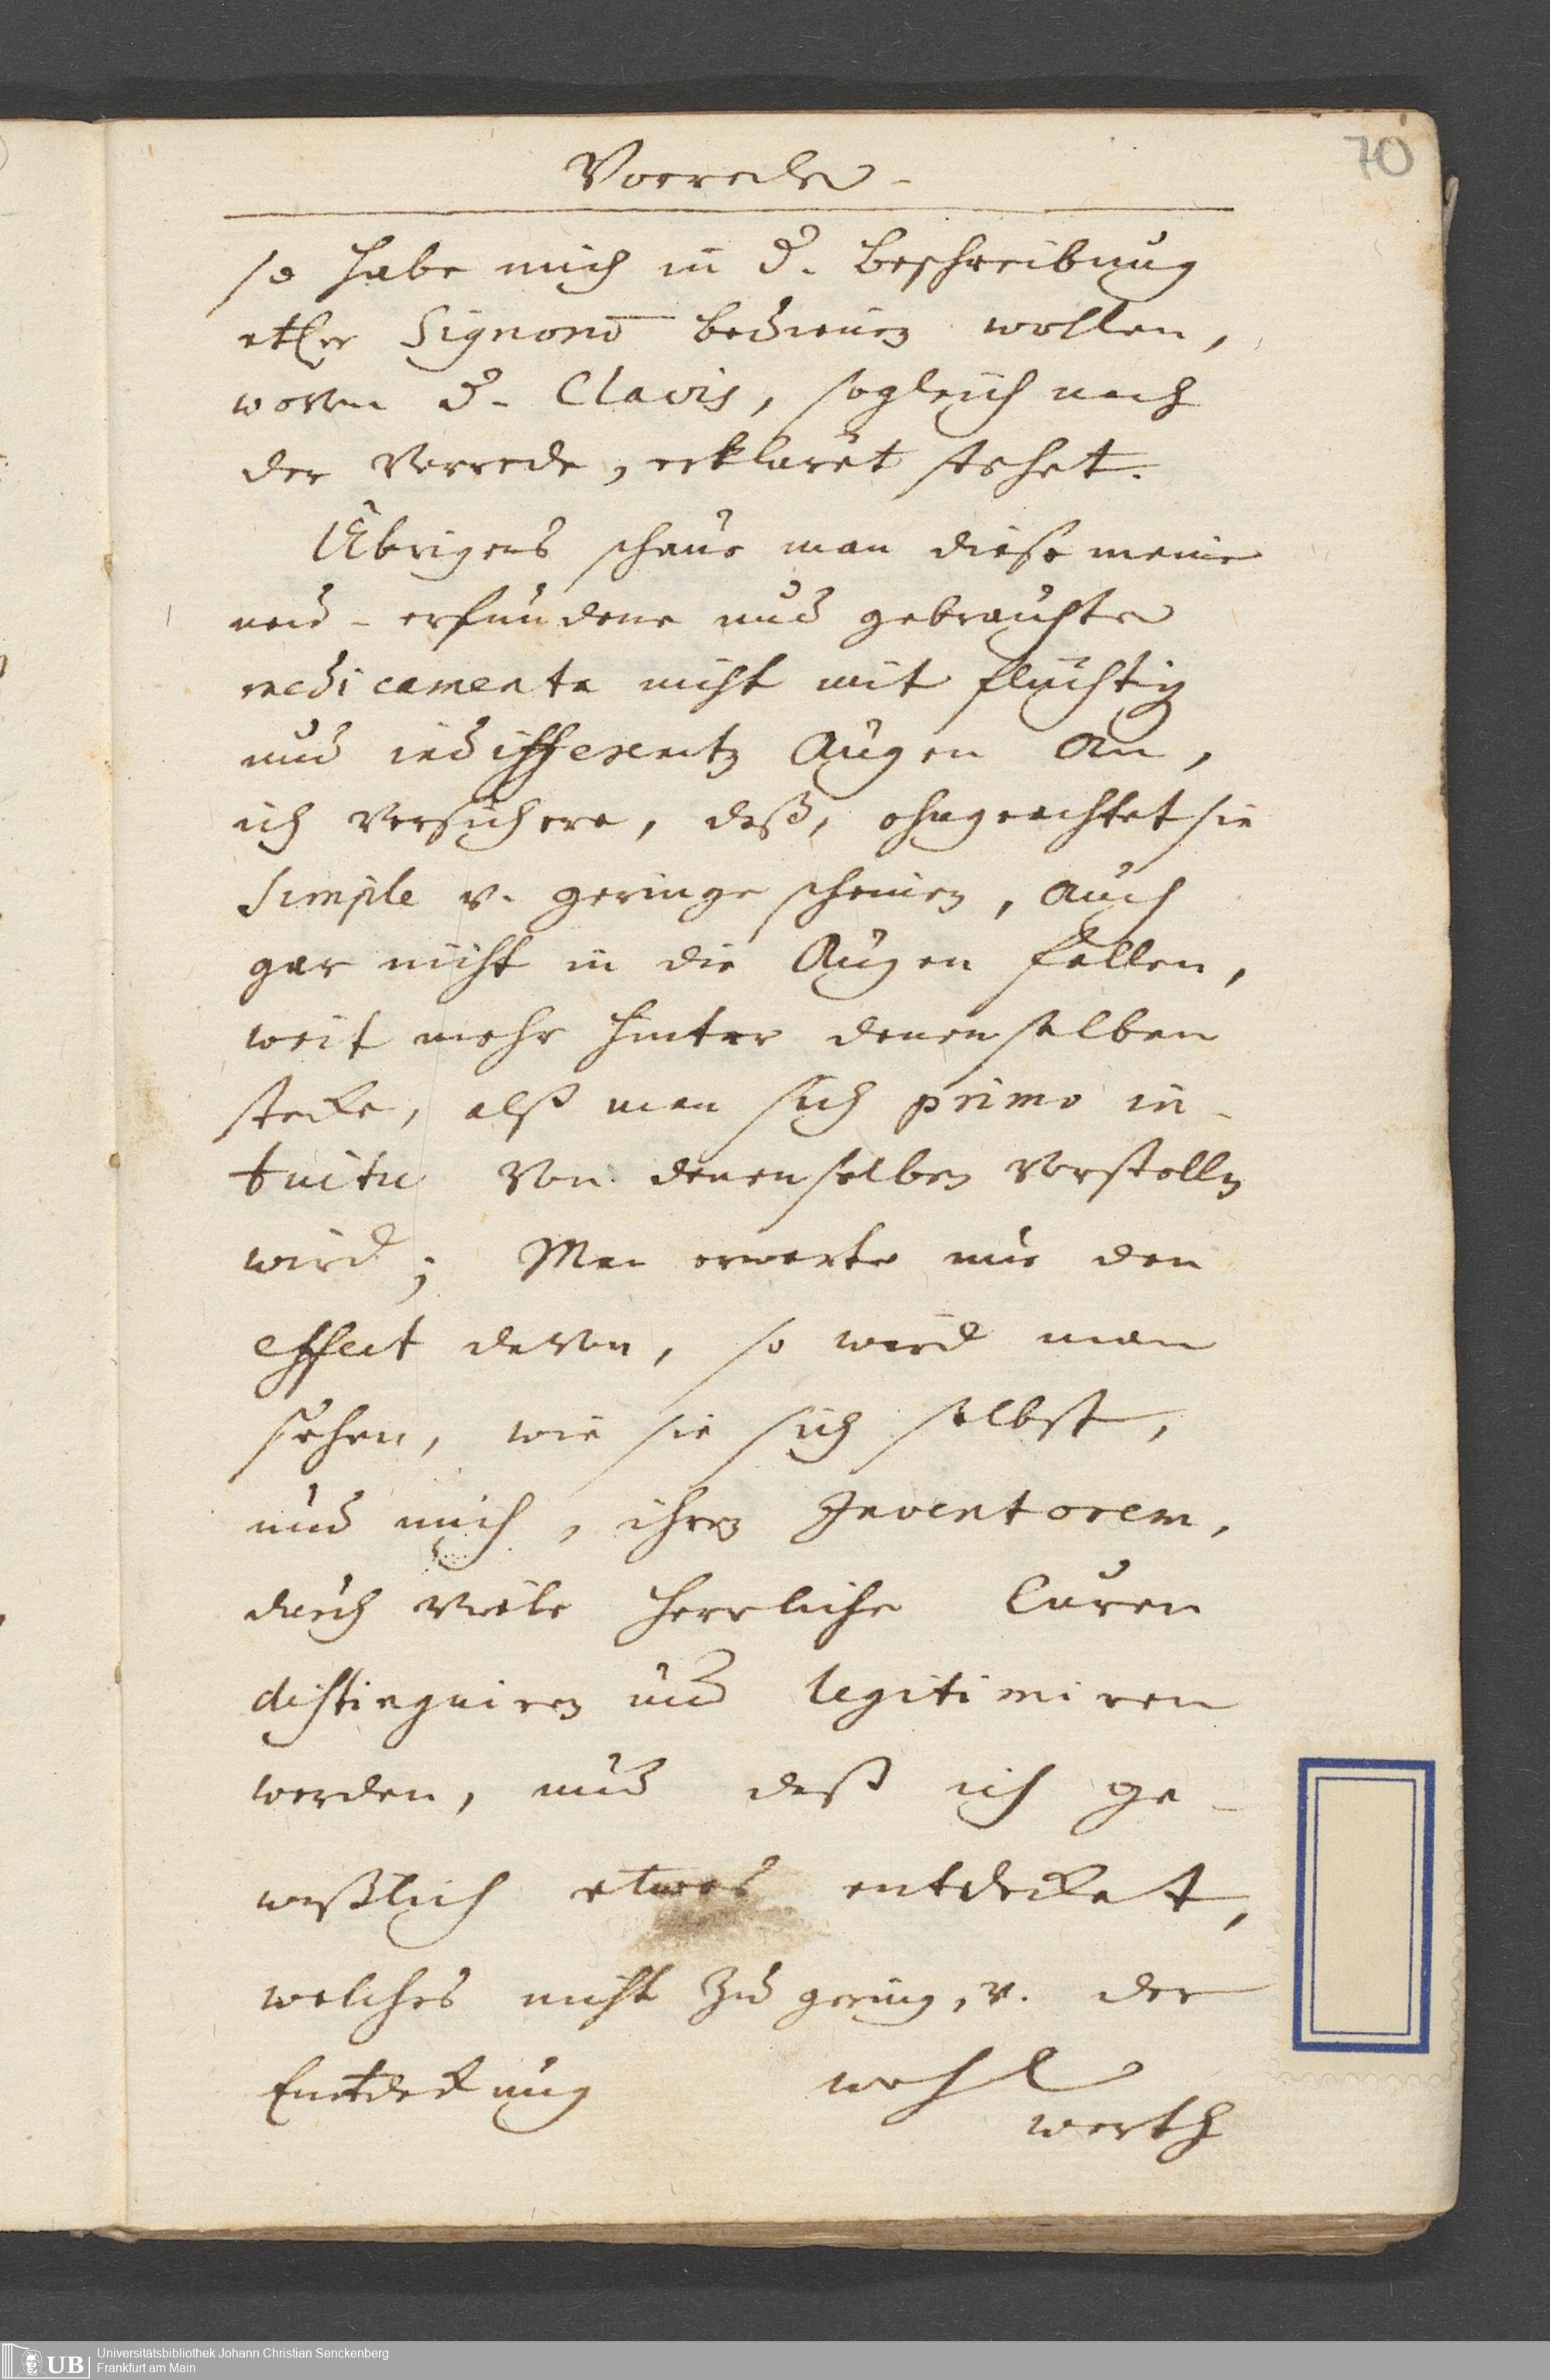 70
Vorrede
so habe mich in d. Beschreibung
etler Signorū bedienen wollen,
wovon d. Clavis, sogleich nach
der Vorrede, erkläret stehet.
Übrigens schaue man diese meine
neu-erfundene und gebrauchte
medicamenta nicht mit flüchtig
und indifferentz Augen an,
ich versichere, daß, ohngeachtet sie
Simple u. geringe scheinen, auch
gar nicht in die Augen fallen,
weit mehr hinter denenselben
stecke, alß man sich primo in-
tuitu von denenselben vorstellen
wird; Man erwarte nur den
effect davon, so wird man
sehen, wie sie sich selbst,
und mich, ihren Inventorem,
durch viele herrliche Curen
distinguiren und legitimiren
werden, und daß ich ge-
wißlich etwas entdecket,
welches nicht zu gering, u. der
Entdeckung wohl
werth
UB
Universitätsbibliothek Johann Christian Senckenberg
Frankfurt am Main